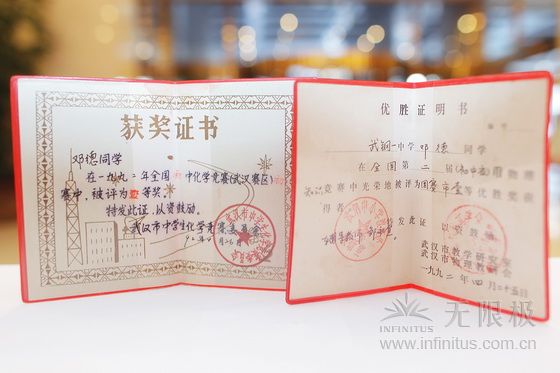 获奖证书
邓德同学
在一九九二年全国初中化学竞赛(武汉赛区)
赛中,被评为壹等奖。
特发此证,以资鼓励。
武汉市中学生化学竞赛委员会
优胜证明书
武钢一中学邓德同学
在全国第二届
知识竞赛中光荣地被评为 优胜奖获
得者
发此证 以资鼓励
武汉市教学研究室
武汉市物理教研会
一九九二年四月二十五日
INFINITUS 无限极
www.infinitus.com.cn